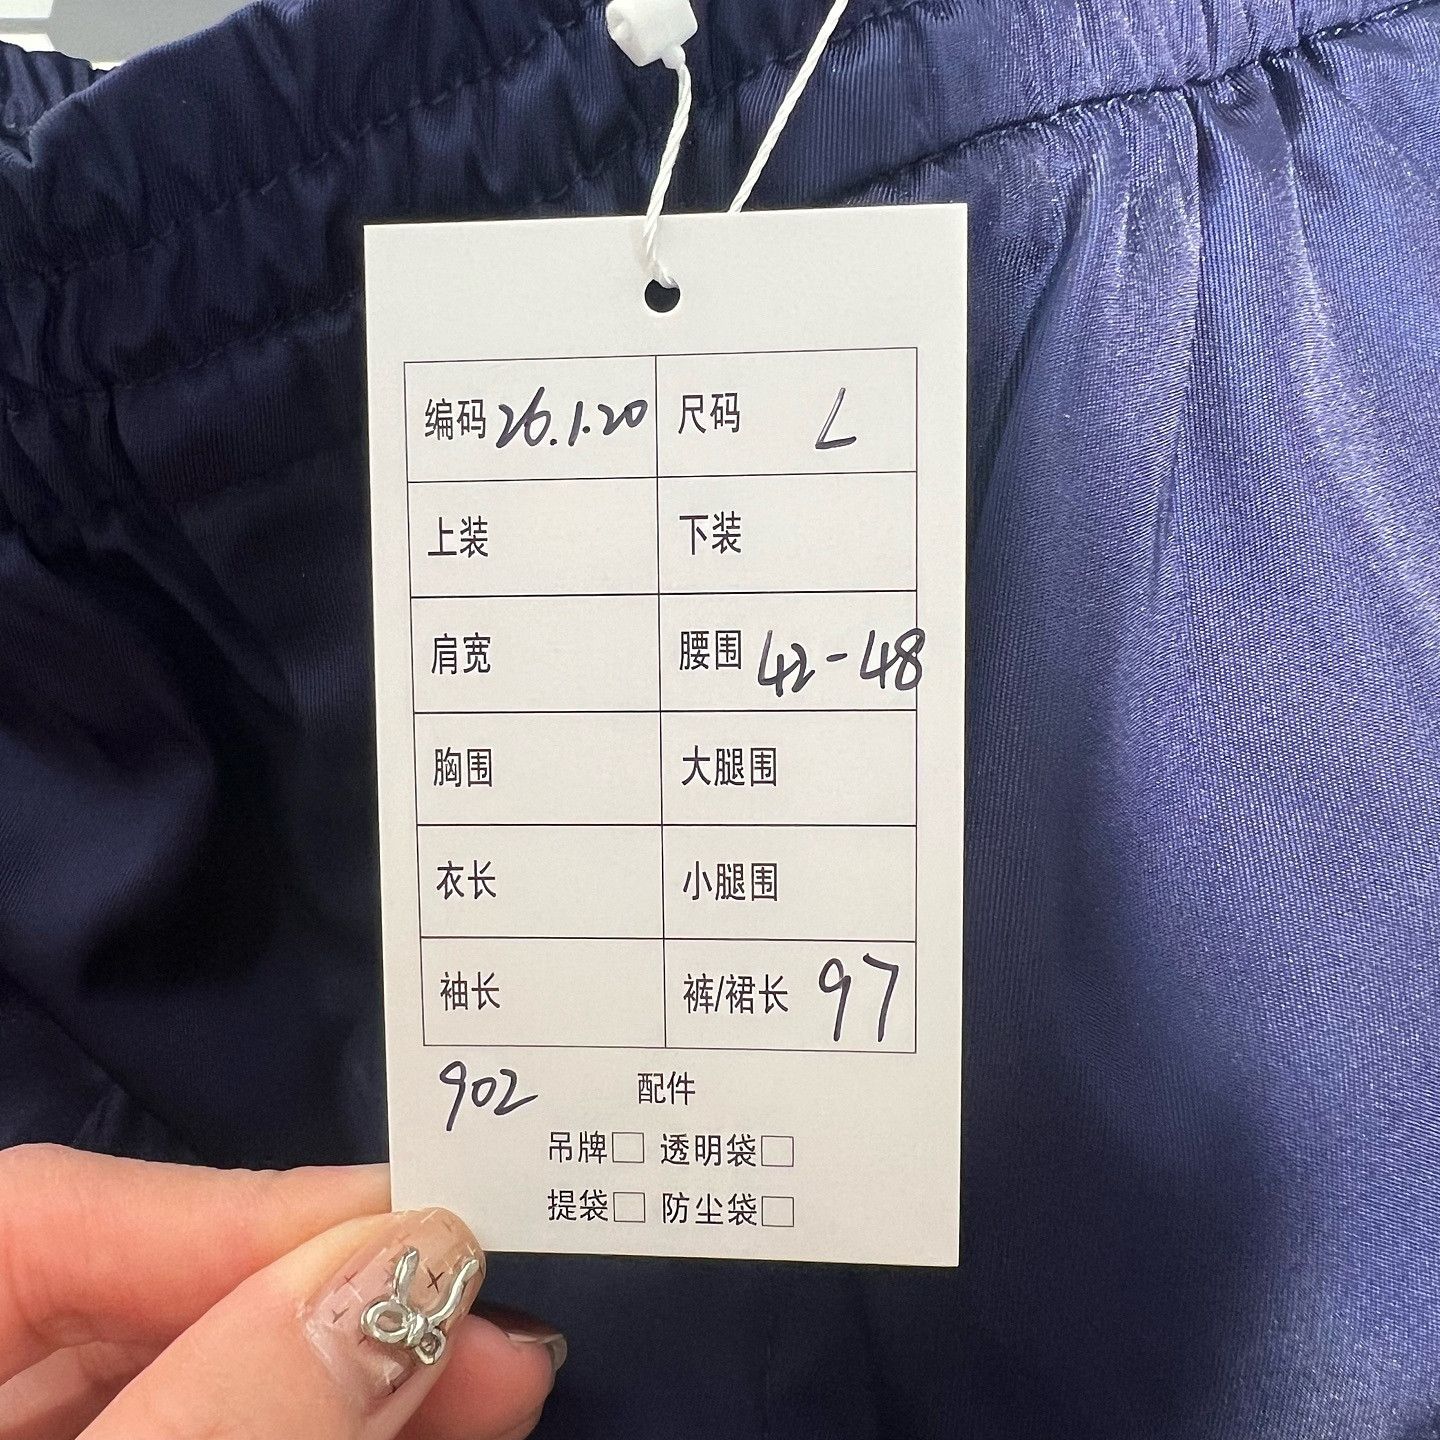 编码 26.1.20 尺码 L
上装 下装
肩宽 腰围 42-48
胸围 大腿围
衣长 小腿围
袖长 裤/裙长 97
902 配件
吊牌□ 透明袋□
提袋□ 防尘袋□